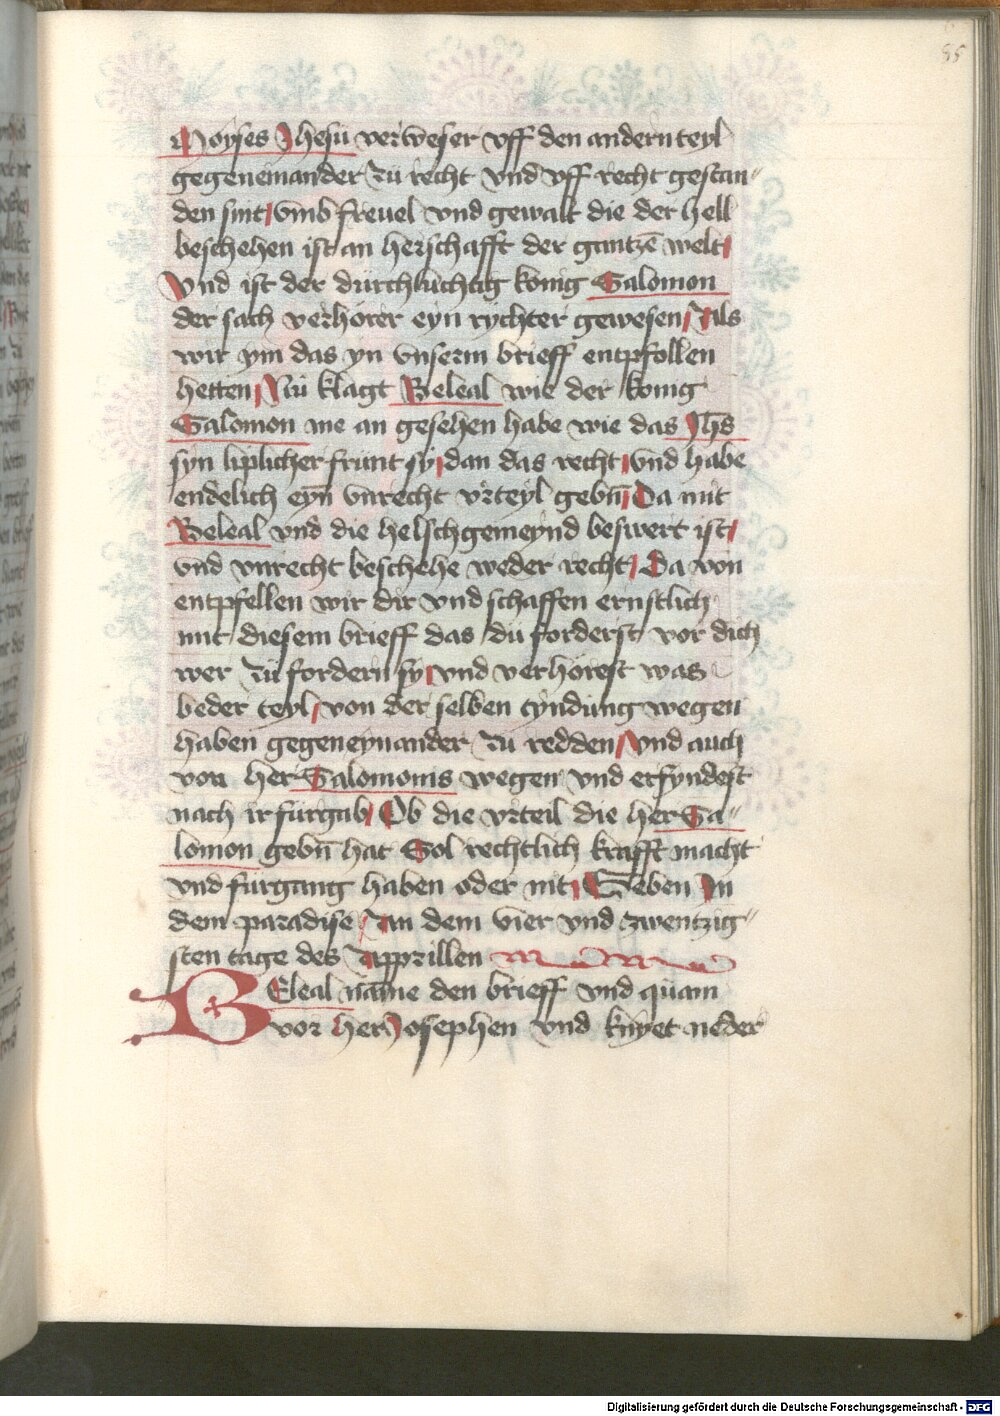 55
Moyses Jhesu verweser vff den andern teyl
gegeneinander zu recht vnd vff recht gestan„
den sint / vmb freuel vnd gewalt die der hell
beschehen ist an herschafft der gantzē welt /
Vnd ist der durchluchtig konig Salomon
der sach verhorer eyn rychter gewesen / Als
wir ym das yn vnserm brieff entpfollen
hetten / Nu klagt Beleal wie der konig
Salomon me an gesehen habe wie das Jhs
syn liplicher frunt sy / dan das recht / vnd habe
endelich eyn vnrecht vrteyl gebn̄ / Da mit
Beleal vnd die helsch gemeynd beswert ist /
vnd vnrecht beschehe weder recht / Da von
entpfellen wir dir vnd schaffen ernstlich
mit diesem brieff das du forderst vor dich
wer zu fordern sy / vnd verhorest was
beder teyl / von der selben tyndung wegen
haben gegeneynander zu redden / vnd auch
von her Salomonis wegen vnd erfyndest
nach ir furgab / Ob die vrteil die her Sa„
lomon gebn̄ hat Sol rechtlich krafft macht
vnd furgang haben oder nit / Geben Jn
dem paradise / An dem vier vnd zwentzig„
sten tage des Apprillen
BEleal name den brieff vnd quam
vor her Josephen vnd knyet neder
Digitalisierung gefördert durch die Deutsche Forschungsgemeinschaft - DFG